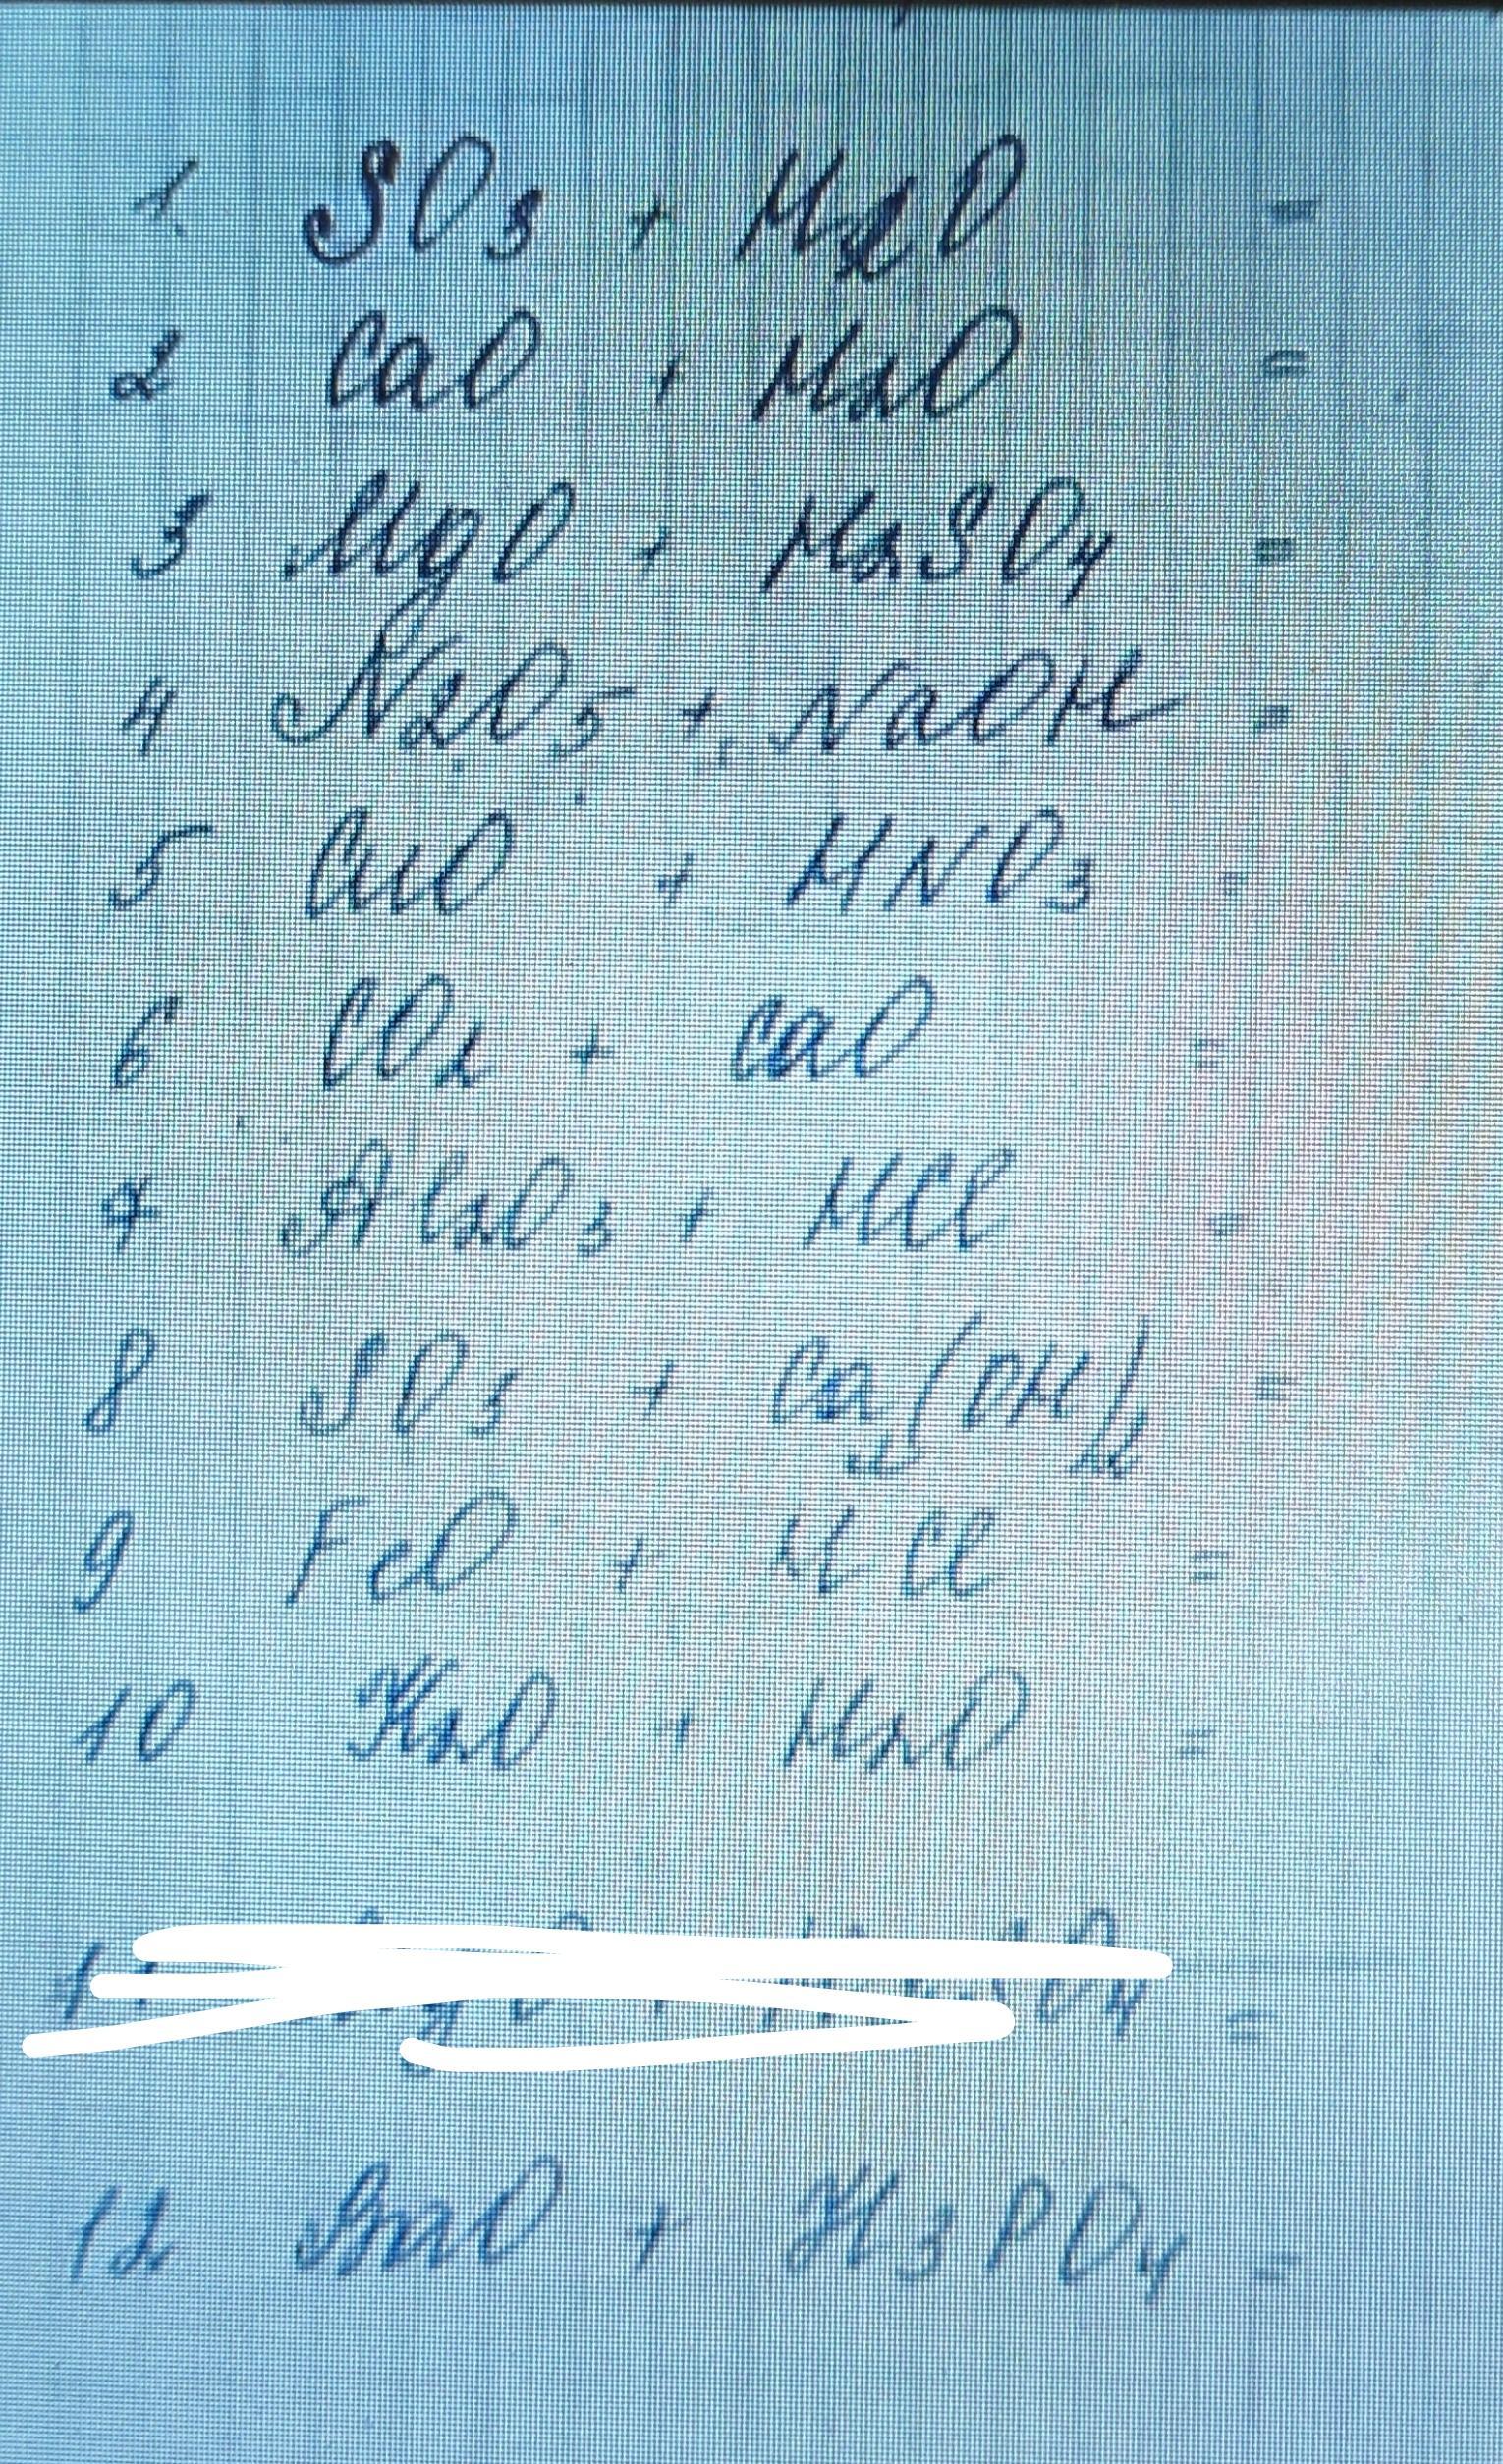 1. SO3 + H2O =
2 CaO + H2O =
3 MgO + H2SO4 =
4 N2O5 + NaOH =
5 CuO + HNO3 =
6 CO2 + CaO =
7 Al2O3 + HCl =
8 SO3 + Ca(OH)2 =
9 FeO + HCl =
10 K2O + H2O =
SO4 =
12 ZnO + H3PO4 =